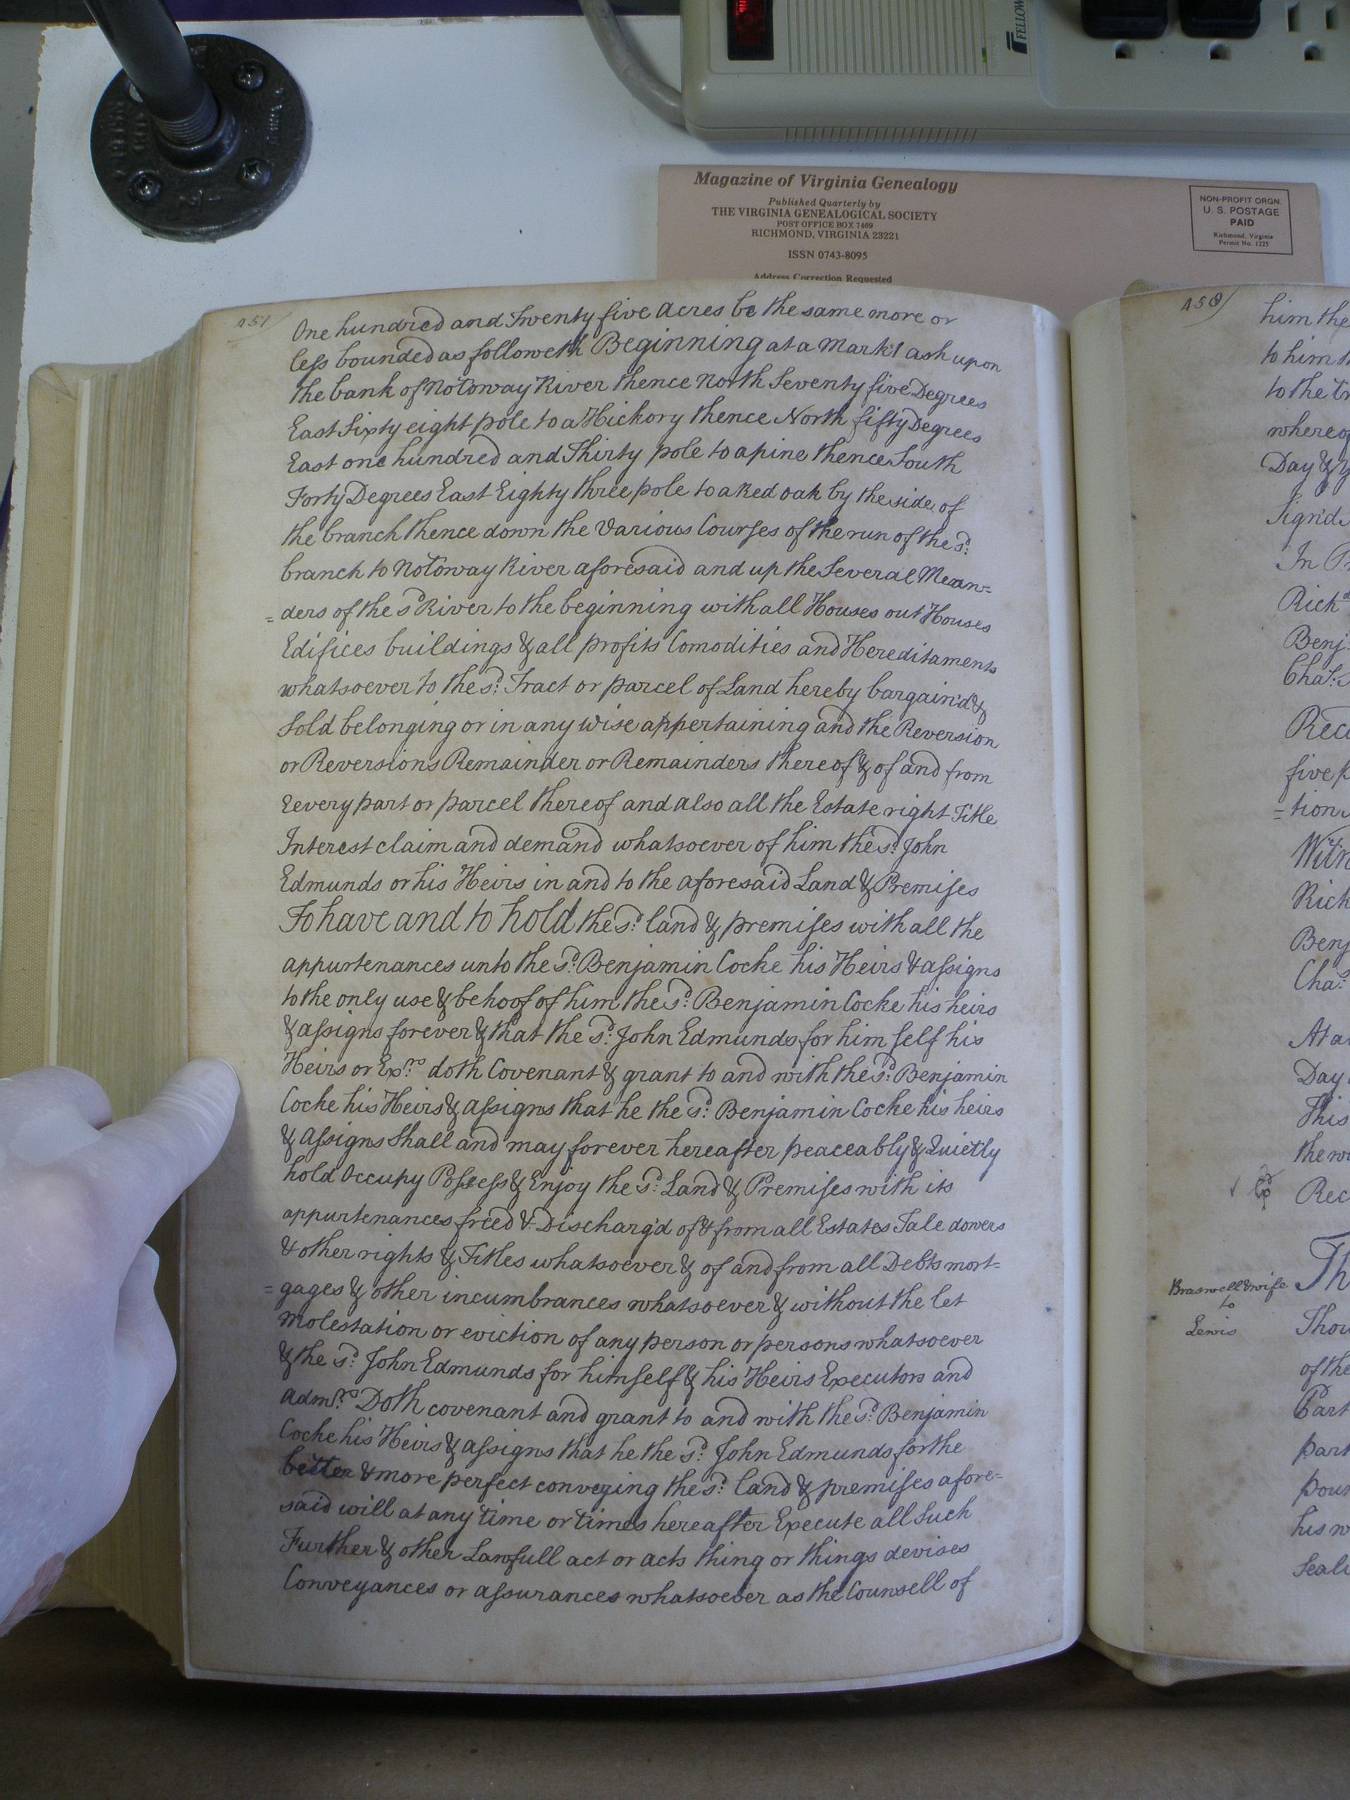 FELLOW
Magazine of Virginia Genealogy
Published Quarterly by
THE VIRGINIA GENEALOGICAL SOCIETY
POST OFFICE BOX 7469
RICHMOND, VIRGINIA 23221
ISSN 0743-8095
Address Correction Requested
NON-PROFIT ORGN.
U. S. POSTAGE
PAID
Richmond, Virginia
Permit No. 1225
457
One hundred and Twenty five Acres be the same more or
less bounded as followeth Beginning at a Mark't ash upon
the bank of Notoway River thence North Seventy five Degrees
East Sixty eight pole to a Hickory thence North fifty Degrees
East one hundred and Thirty pole to a pine thence South
Forty Degrees East Eighty three pole to a Red oak by the side of
the branch thence down the Various Courses of the run of the sd:
branch to Notoway River aforesaid and up the Several Mean-
=ders of the sd River to the beginning with all Houses out Houses
Edifices buildings & all profits Comodities and Hereditaments
whatsoever to the sd: Tract or parcel of Land hereby bargain'd &
Sold belonging or in any wise appertaining and the Reversion
or Reversions Remainder or Remainders thereof & of and from
Eevery part or parcel thereof and also all the Estate right Title
Interest claim and demand whatsoever of him the sd: John
Edmunds or his Heirs in and to the aforesaid Land & Premises
To have and to hold the sd: land & premises with all the
appurtenances unto the sd: Benjamin Cocke his Heirs & assigns
to the only use & behoof of him the sd: Benjamin Cocke his heirs
& assigns forever & that the sd: John Edmunds for him self his
Heirs or Exrs doth Covenant & grant to and with the sd: Benjamin
Cocke his Heirs & assigns that he the sd: Benjamin Cocke his heirs
& Assigns Shall and may forever hereafter peaceably & Quietly
hold Occupy Possess & Enjoy the sd: Land & Premises with its
appurtenances freed & Discharg'd of & from all Estates Sale dowers
& other rights & Titles whatsoever & of and from all Debts mort=
=gages & other incumbrances whatsoever & without the let
molestation or eviction of any person or persons whatsoever
& the sd: John Edmunds for himself & his Heirs Executors and
admrs Doth covenant and grant to and with the sd: Benjamin
Cocke his Heirs & assigns that he the sd: John Edmunds for the
better & more perfect conveying the sd: land & premises afore-
said will at any time or times hereafter Execute all Such
Further & other Lawfull act or acts thing or things devises
Conveyances or assurances whatsoever as the Counsell of
458
him the
to him
to the
whereof
Day &
Sign'd
In
Richd
Benj
Chas:
Rec
five
=tion
Witn
Rich
Benj
Chas
At a
Day
This
the
Rec
Braswell & wife
to
Lewis
Th
Thou
of the
Part
part
poun
his
Seal